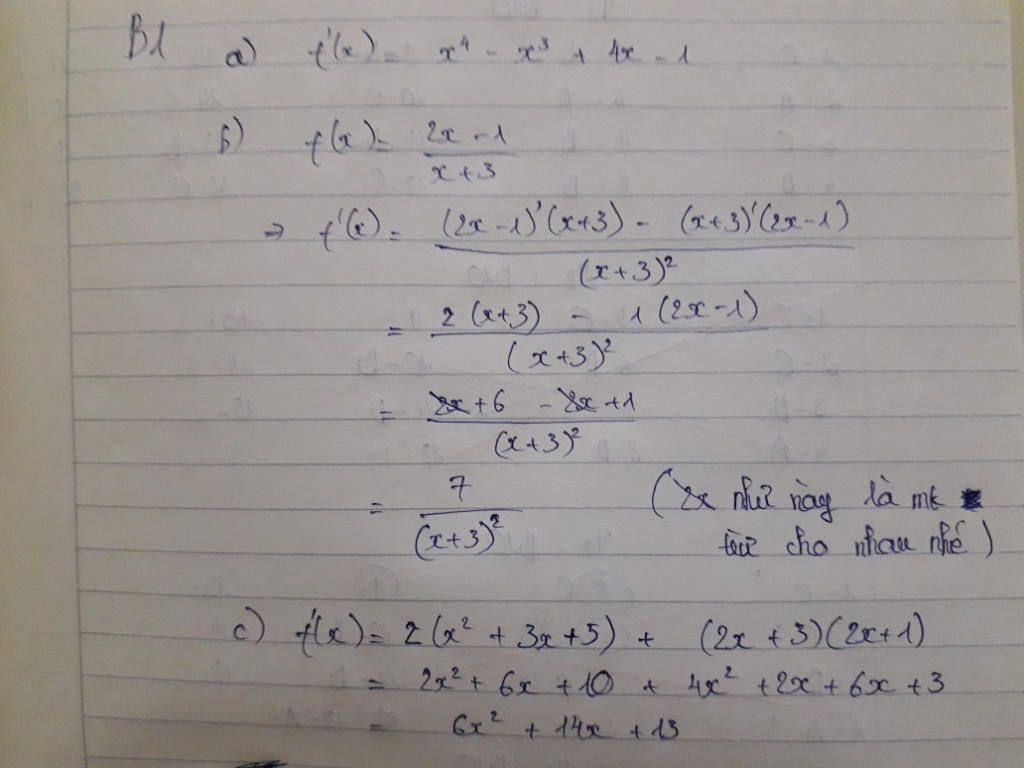 B1 a) f'(x) = x⁴ - x³ + 4x - 1
b) f(x) = (2x - 1)/(x + 3)
⇒ f'(x) = ((2x - 1)'(x+3) - (x+3)'(2x-1))/(x+3)²
= (2(x+3) - 1(2x-1))/(x+3)²
= (2x + 6 - 2x + 1)/(x+3)²
= 7/(x+3)² (2x như này là mk
trừ cho nhau nhé)
c) f'(x) = 2(x² + 3x + 5) + (2x + 3)(2x+1)
= 2x² + 6x + 10 + 4x² + 2x + 6x + 3
= 6x² + 14x + 13